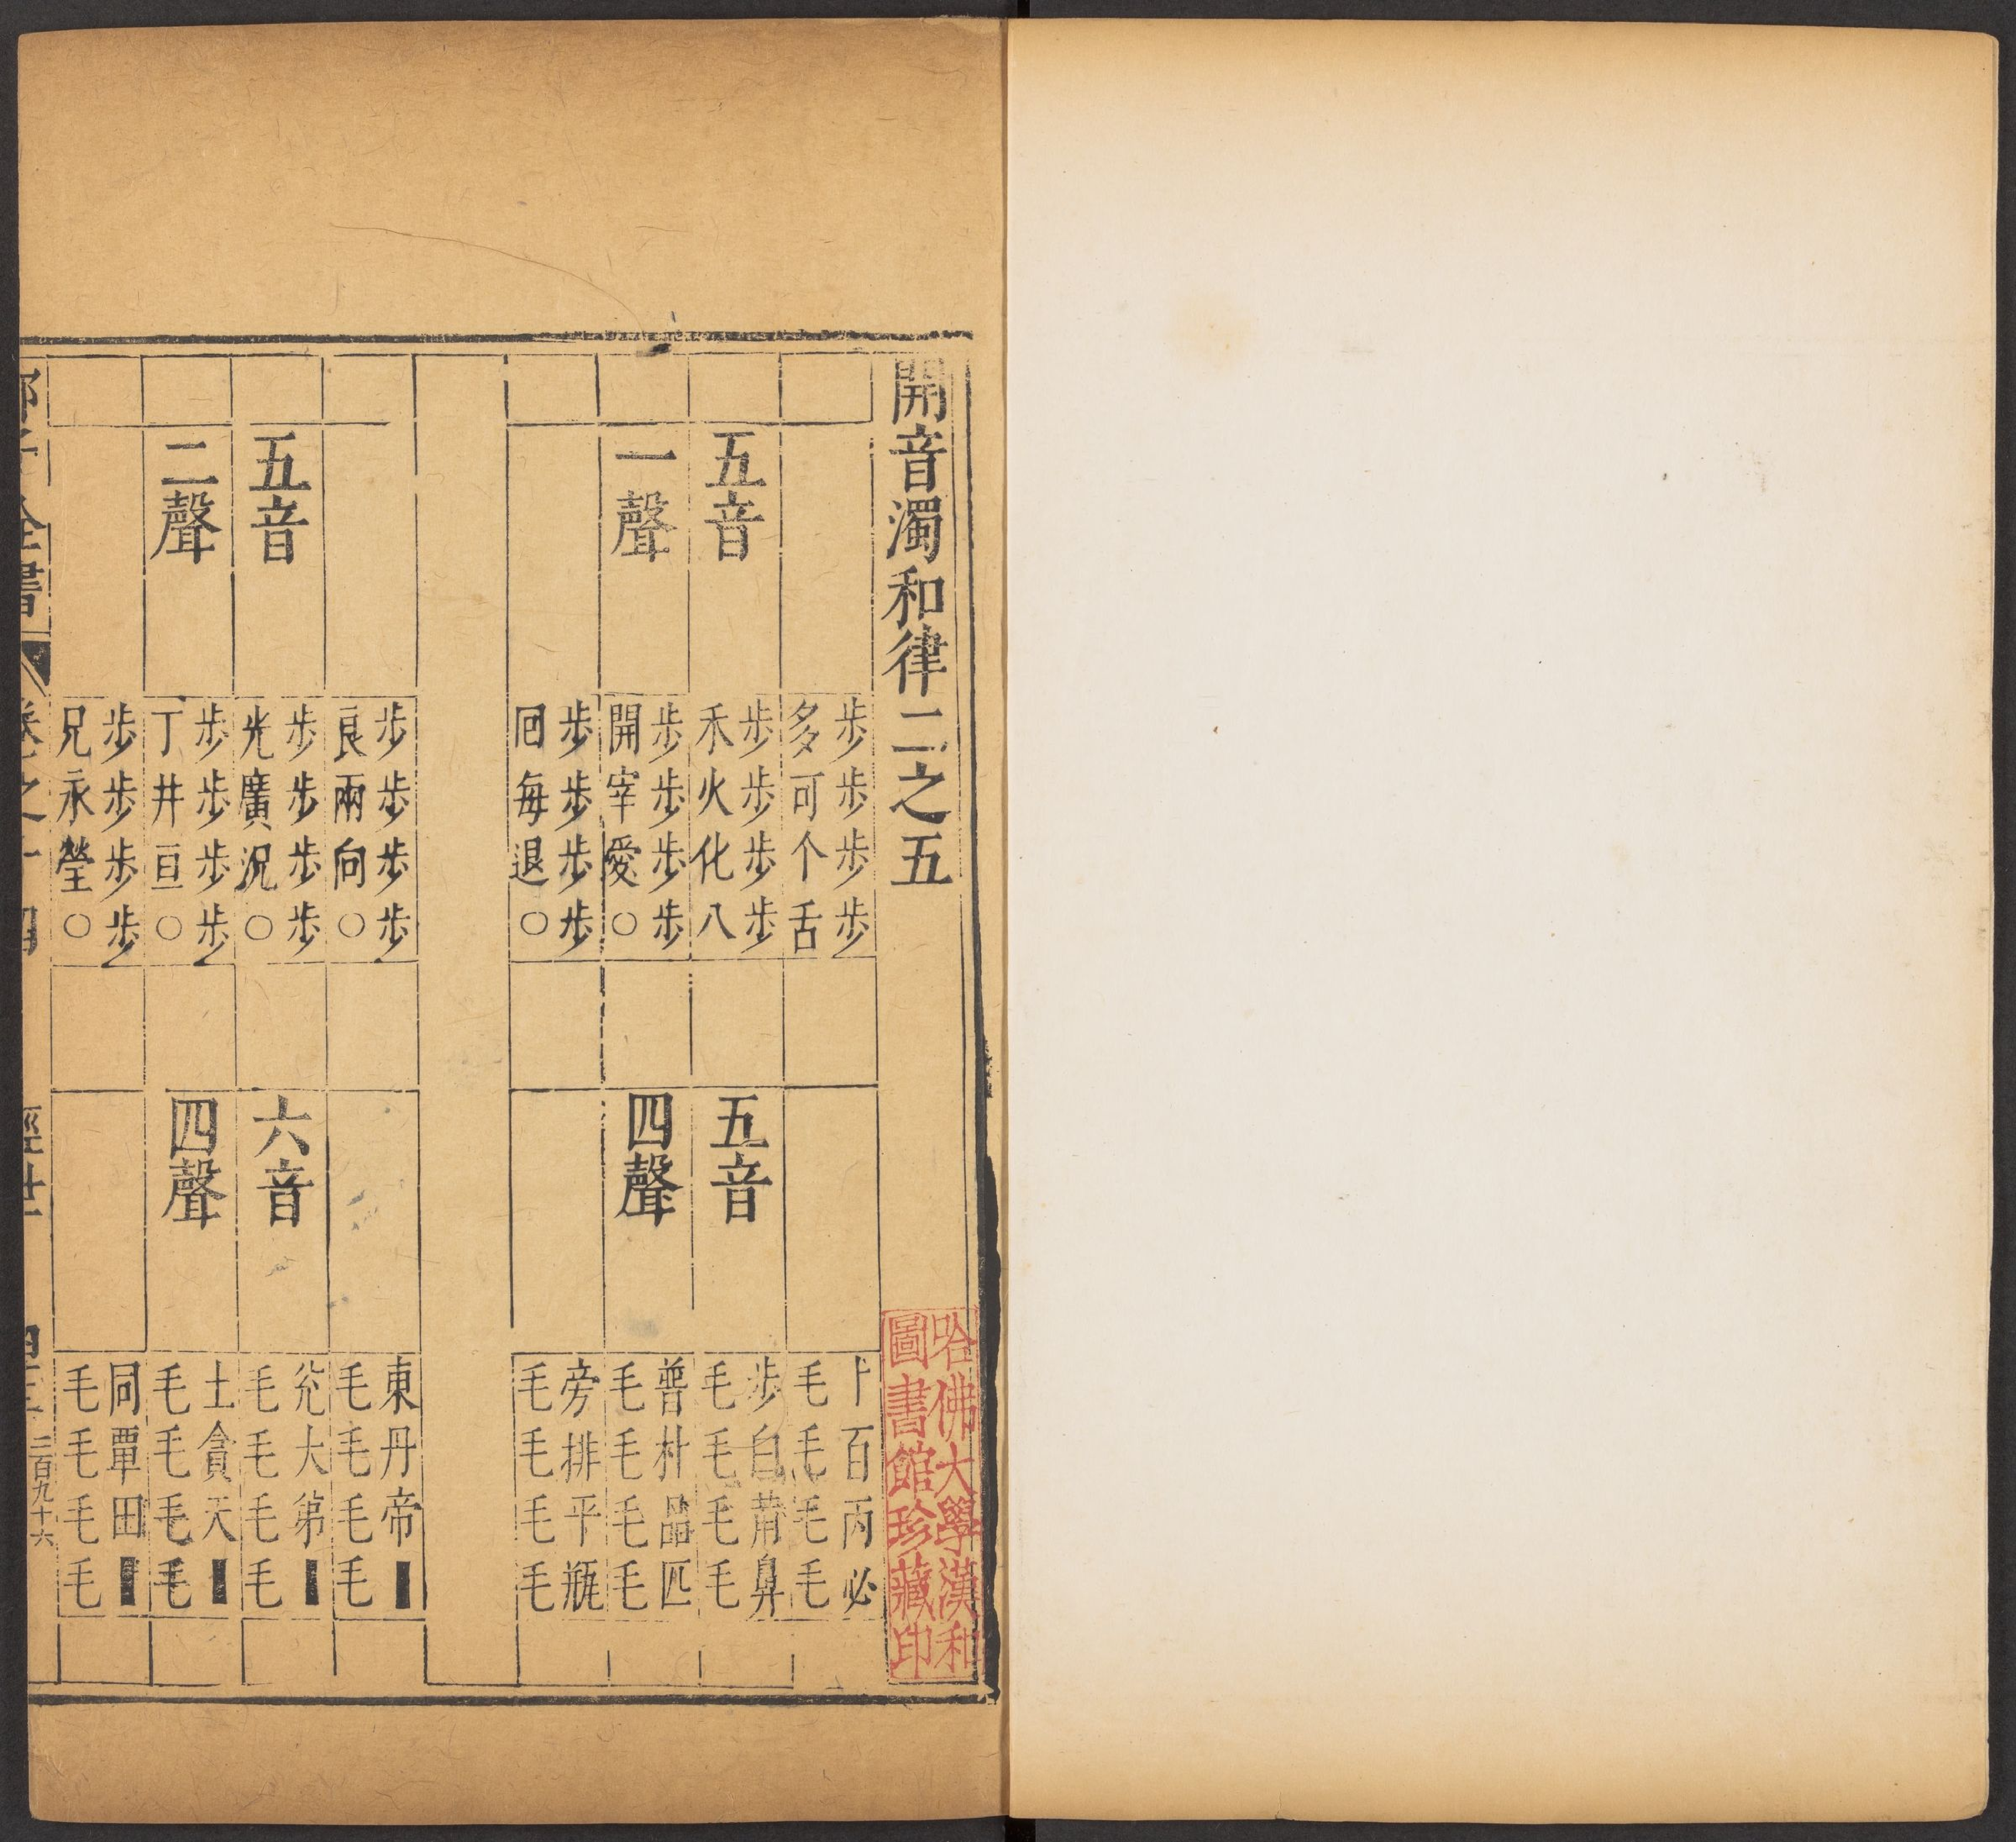 開音濁和律二之五
五音
一聲
步步步步
多可个舌
步步步步
禾火化八
步步步步
開宰愛○
步步步步
回每退○
五音
四聲
卜百丙必
毛毛毛毛
步白葡鼻
毛毛毛毛
普朴品匹
毛毛毛毛
旁排平瓶
毛毛毛毛
五音
二聲
步步步步
良兩向○
步步步步
光廣況○
步步步步
丁井亘○
步步步步
兄永瑩○
六音
四聲
東丹帝■
毛毛毛毛
兌大弟■
毛毛毛毛
土貪天■
毛毛毛毛
同覃田■
毛毛毛毛
全書
卷之十四
經世
二百九十六
哈佛大學漢和
圖書館珍藏印